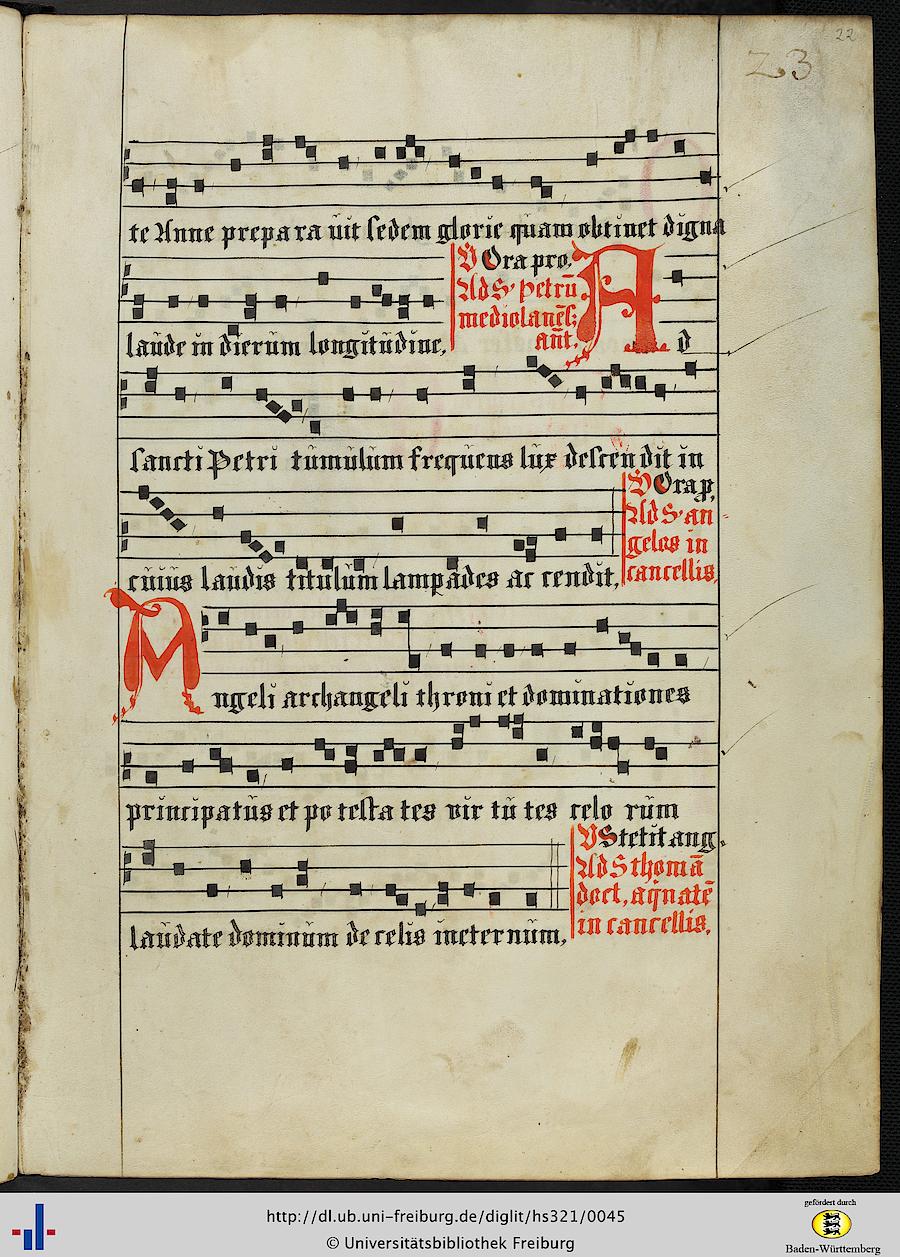 22
23
te Anne prepara uit sedem glorie quam obtinet digna
V Ora pro.
Ad S. Petrū
mediolanēs:
añt.
laude in dierum longitudine.
A d
sancti Petri tumulum frequens lux descen dit in
V Ora p̱,
Ad S. an
gelos in
cancellis,
cuius laudis titulum lampades ac cendit,
A ngeli archangeli throni et dominationes
principatus et po testa tes vir tu tes celo rum
V Stetit ang.
Ad S thomā
doct, aq̄natē
in cancellis,
laudate dominum de celis ineternum,
http://dl.ub.uni-freiburg.de/diglit/hs321/0045
© Universitätsbibliothek Freiburg
gefördert durch
Baden-Württemberg